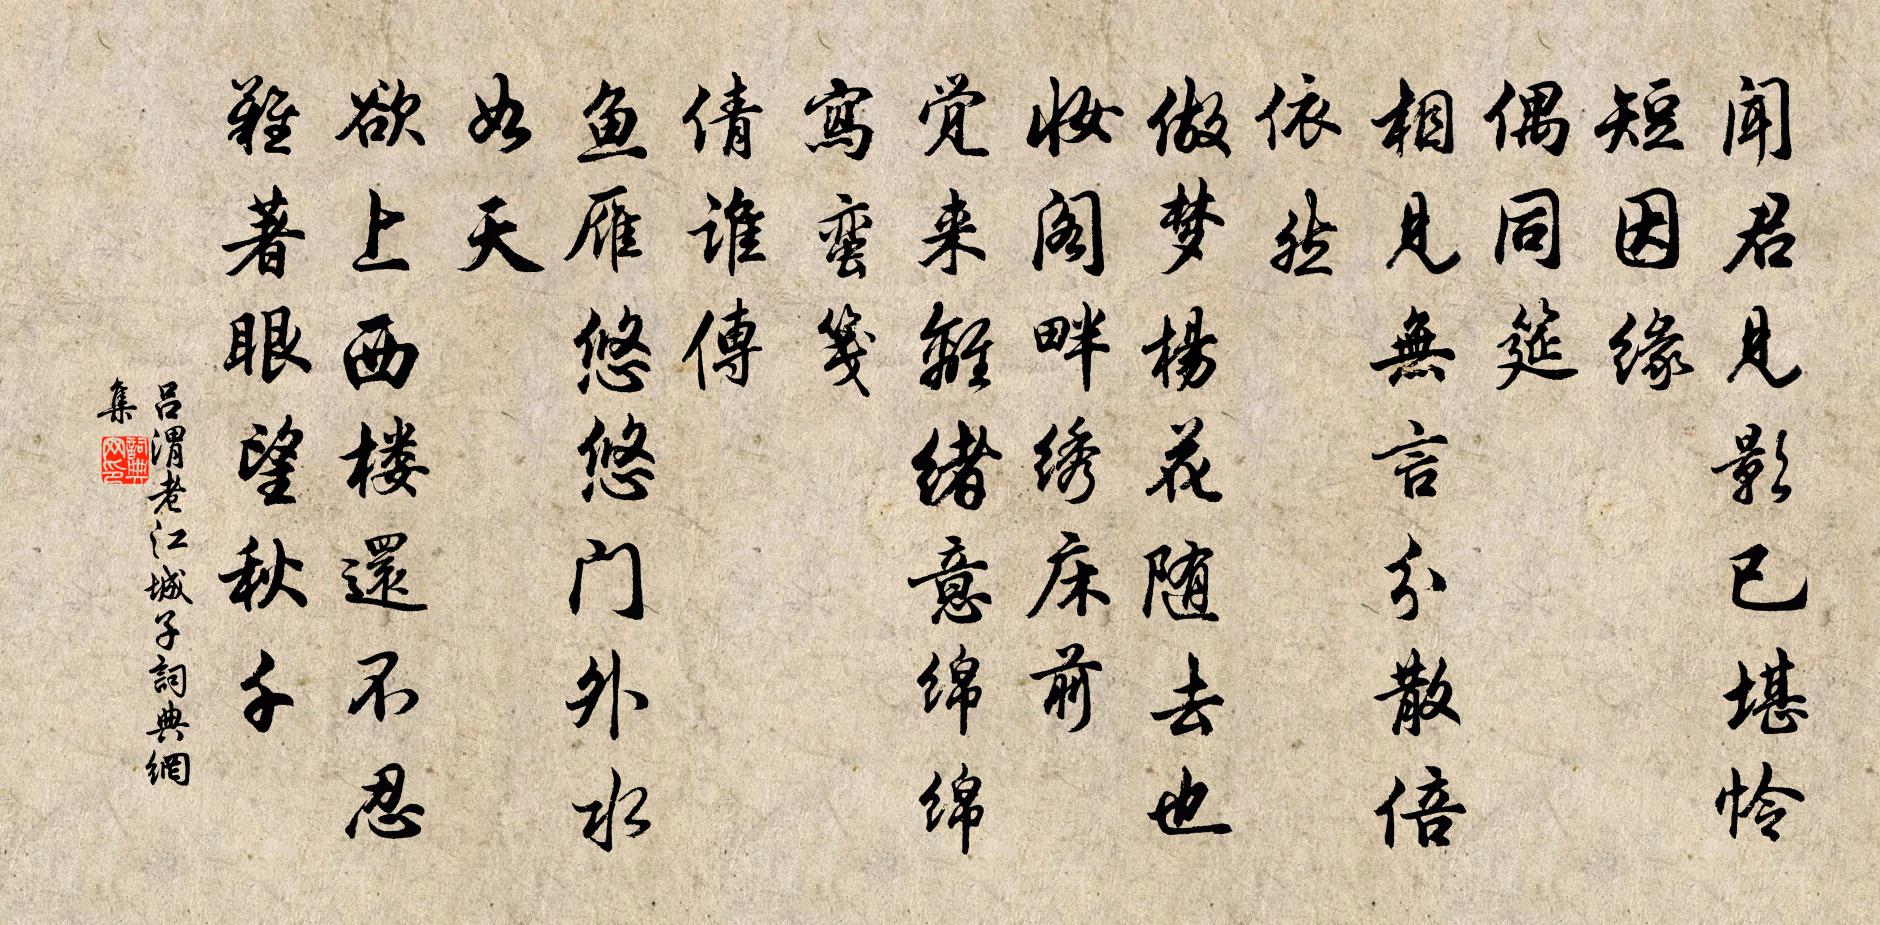 闻君见影已堪怜
短因缘
偶同筵
相见無言分散倍
依然
做梦楊花随去也
妆阁畔绣床前
觉来離绪意绵绵
寫蛮笺
倩谁傳
鱼雁悠悠门外水
如天
欲上西楼還不忍
難著眼望秋千
吕渭老江城子詞典網
集
詞典网印